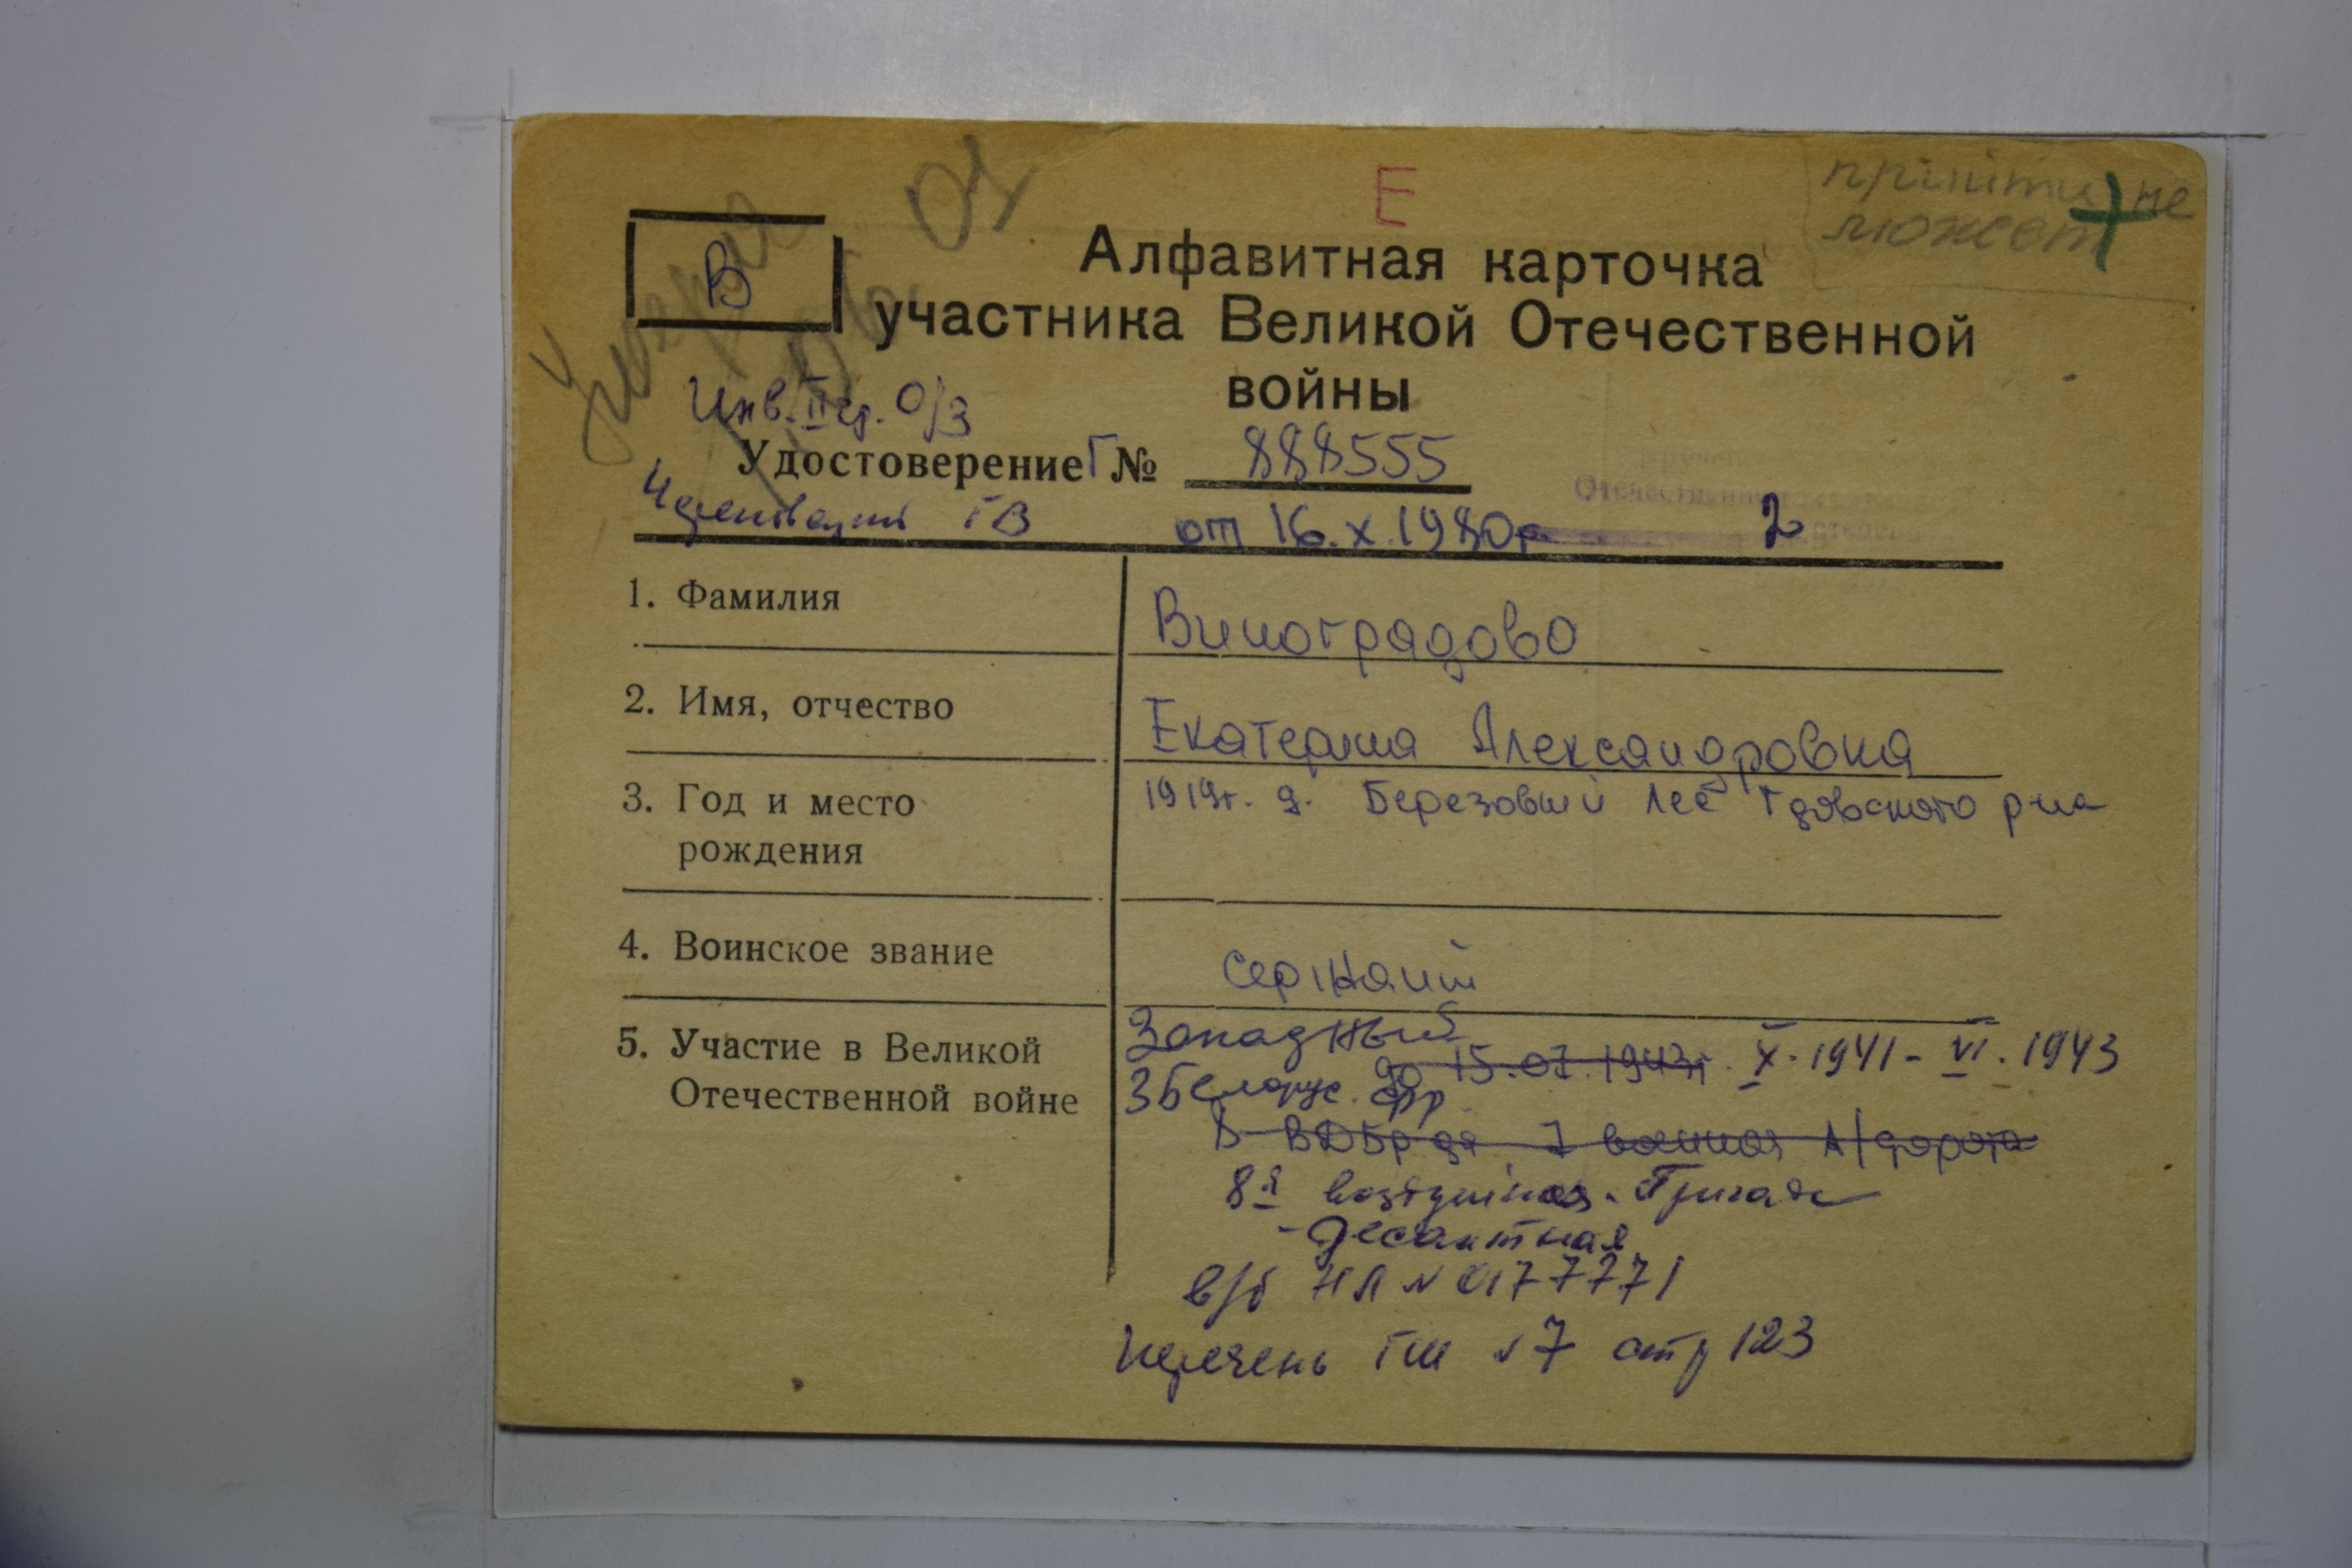 Е
прийти не
может
В
Умерла
Алфавитная карточка
участника Великой Отечественной
войны
Инв. II гр. О/З
Удостоверение Г № 888555
ГВ от 16.X.1980г 2
1. Фамилия Виноградова
2. Имя, отчество Екатерина Александровна
3. Год и место
рождения
1919г. д. Березовый Лес Гдовского р-на
4. Воинское звание сержант
5. Участие в Великой
Отечественной войне
Западный
до 15.07.1943г. X.1941 - VI.1943
3 Белорус. фр.
8 ВДБр-да 7 военная А/дорога
8я воздушная. Бригада
- десантная
в/б НЛ № 0177771
Перечень ГШ № 7 стр 123